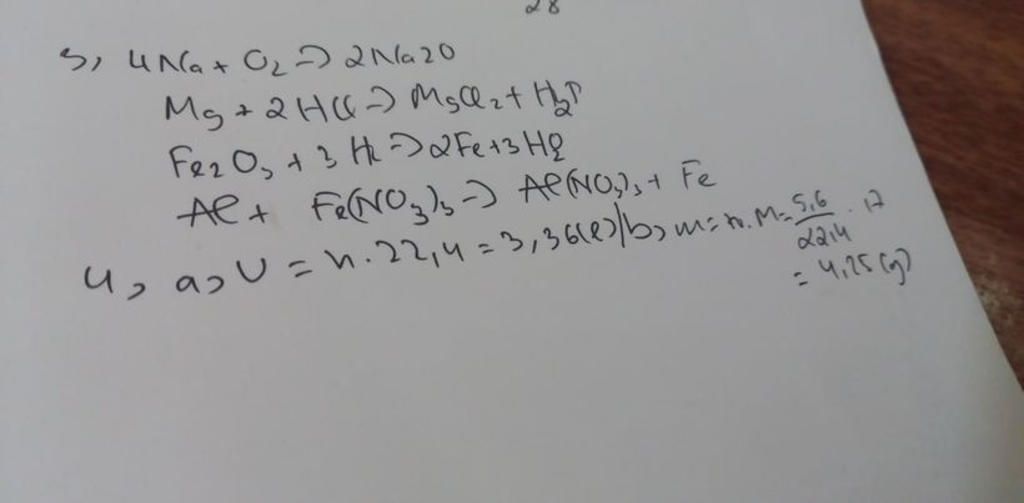 28
3, 4Na + O2 → 2Na2O
Mg + 2HCl → MgCl2 + H2↑
Fe2O3 + 3H2 → 2Fe + 3H2
Al + Fe(NO3)3 → Al(NO3)3 + Fe
4, a, V = n.22,4 = 3,36(l) / b, m = n.M = 5,6/22,4 . 17
= 4,25 (g)